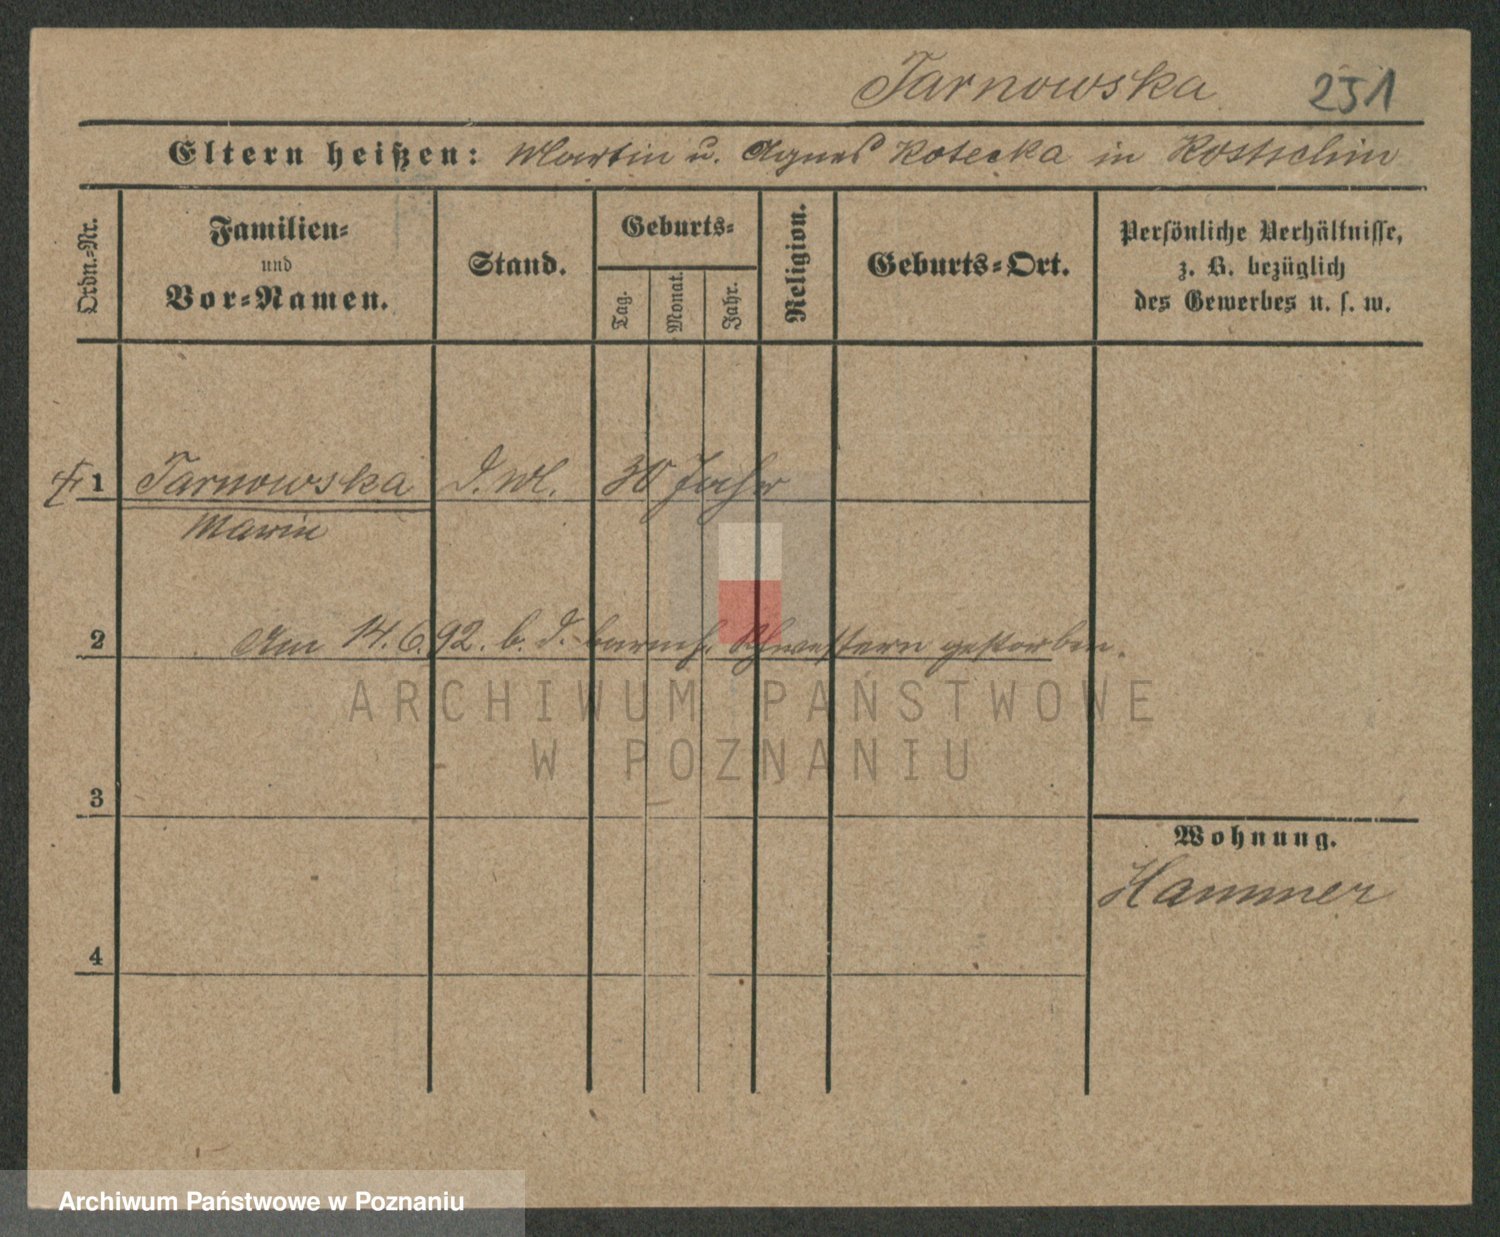 Tarnowska 251
Eltern heißen: Martin u. Agnes Kotecka in Kostschin
Ordn.-Nr.
Familien-
und
Vor-Namen.
Stand.
Geburts-
Tag.
Monat.
Jahr.
Religion.
Geburts-Ort.
Persönliche Verhältnisse,
z. B. bezüglich
des Gewerbes u. s. w.
1 Tarnowska D. M. 30 Jahr
Marie
2 Am 14.6.92. b. d. barmh. Schwestern gestorben.
ARCHIWUM PAŃSTWOWE
W POZNANIU
3
Wohnung.
Hammer
4
Archiwum Państwowe w Poznaniu